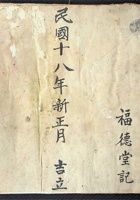 民國十八年新正月 吉立
福德堂記